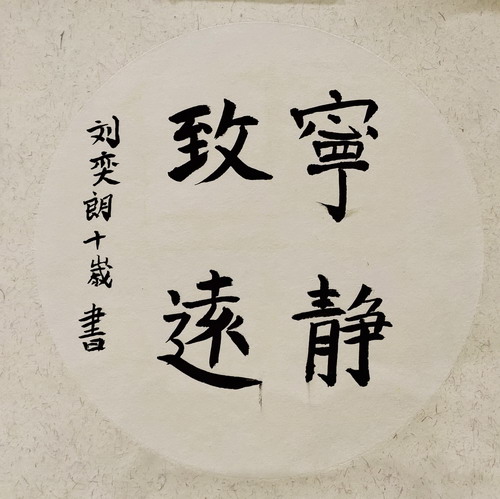 寧静
致遠
刘奕朗十歲書